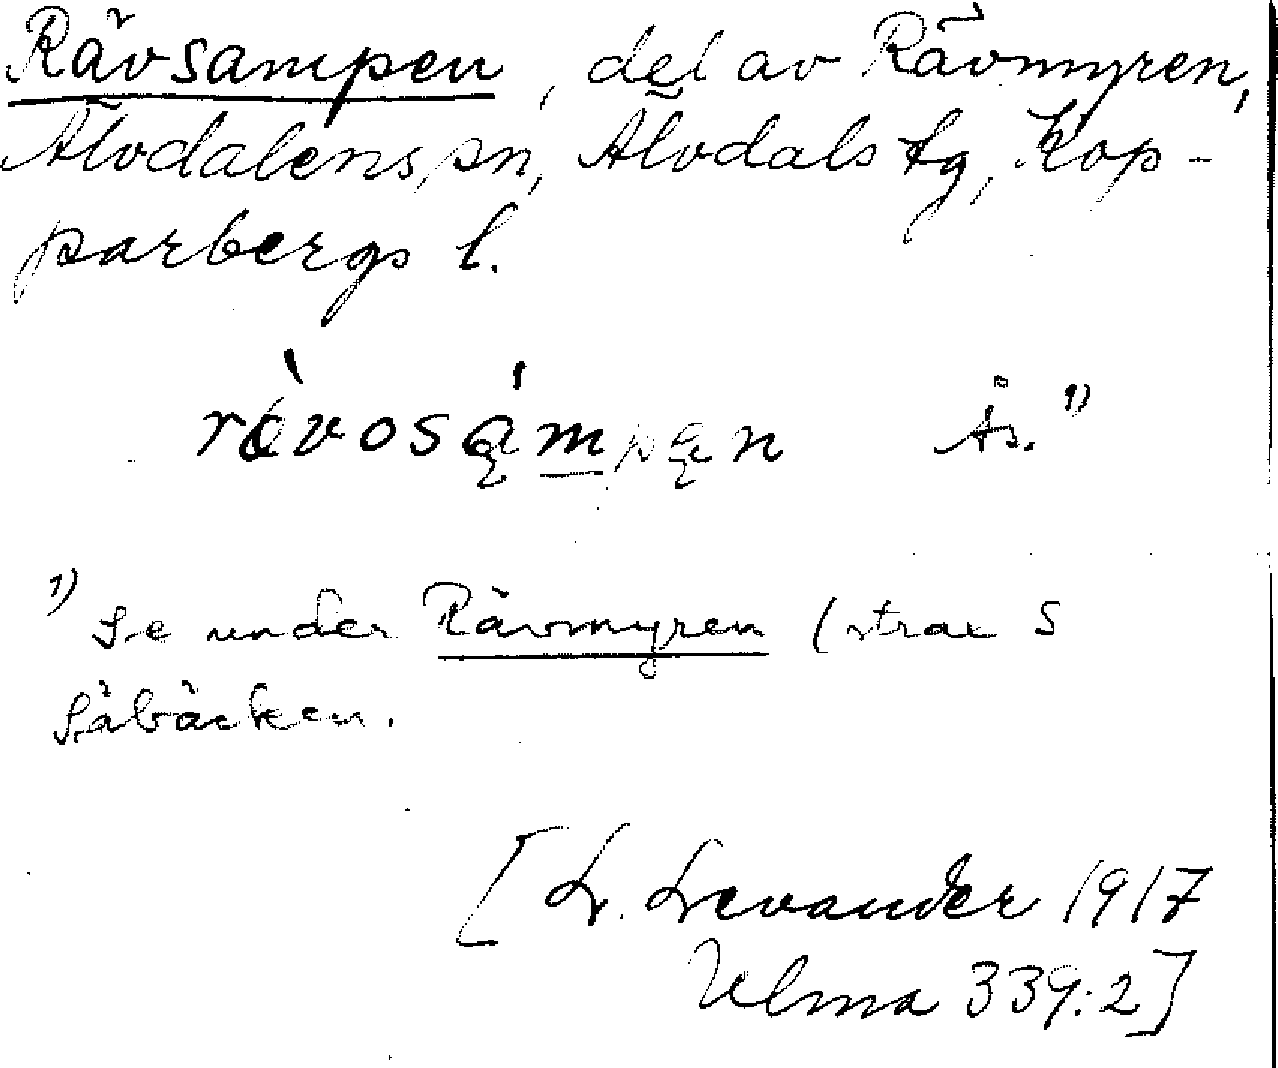 Rävsampen, del av Rävmyren,
Älvdalens sn, Älvdals tg, Kop-
parbergs l.
rὰvosą́mpęn Ås. 1)
1) Se under Rävmyren (strax S
Såbäcken.
[L. Levander 1917
Ulma 339:2]